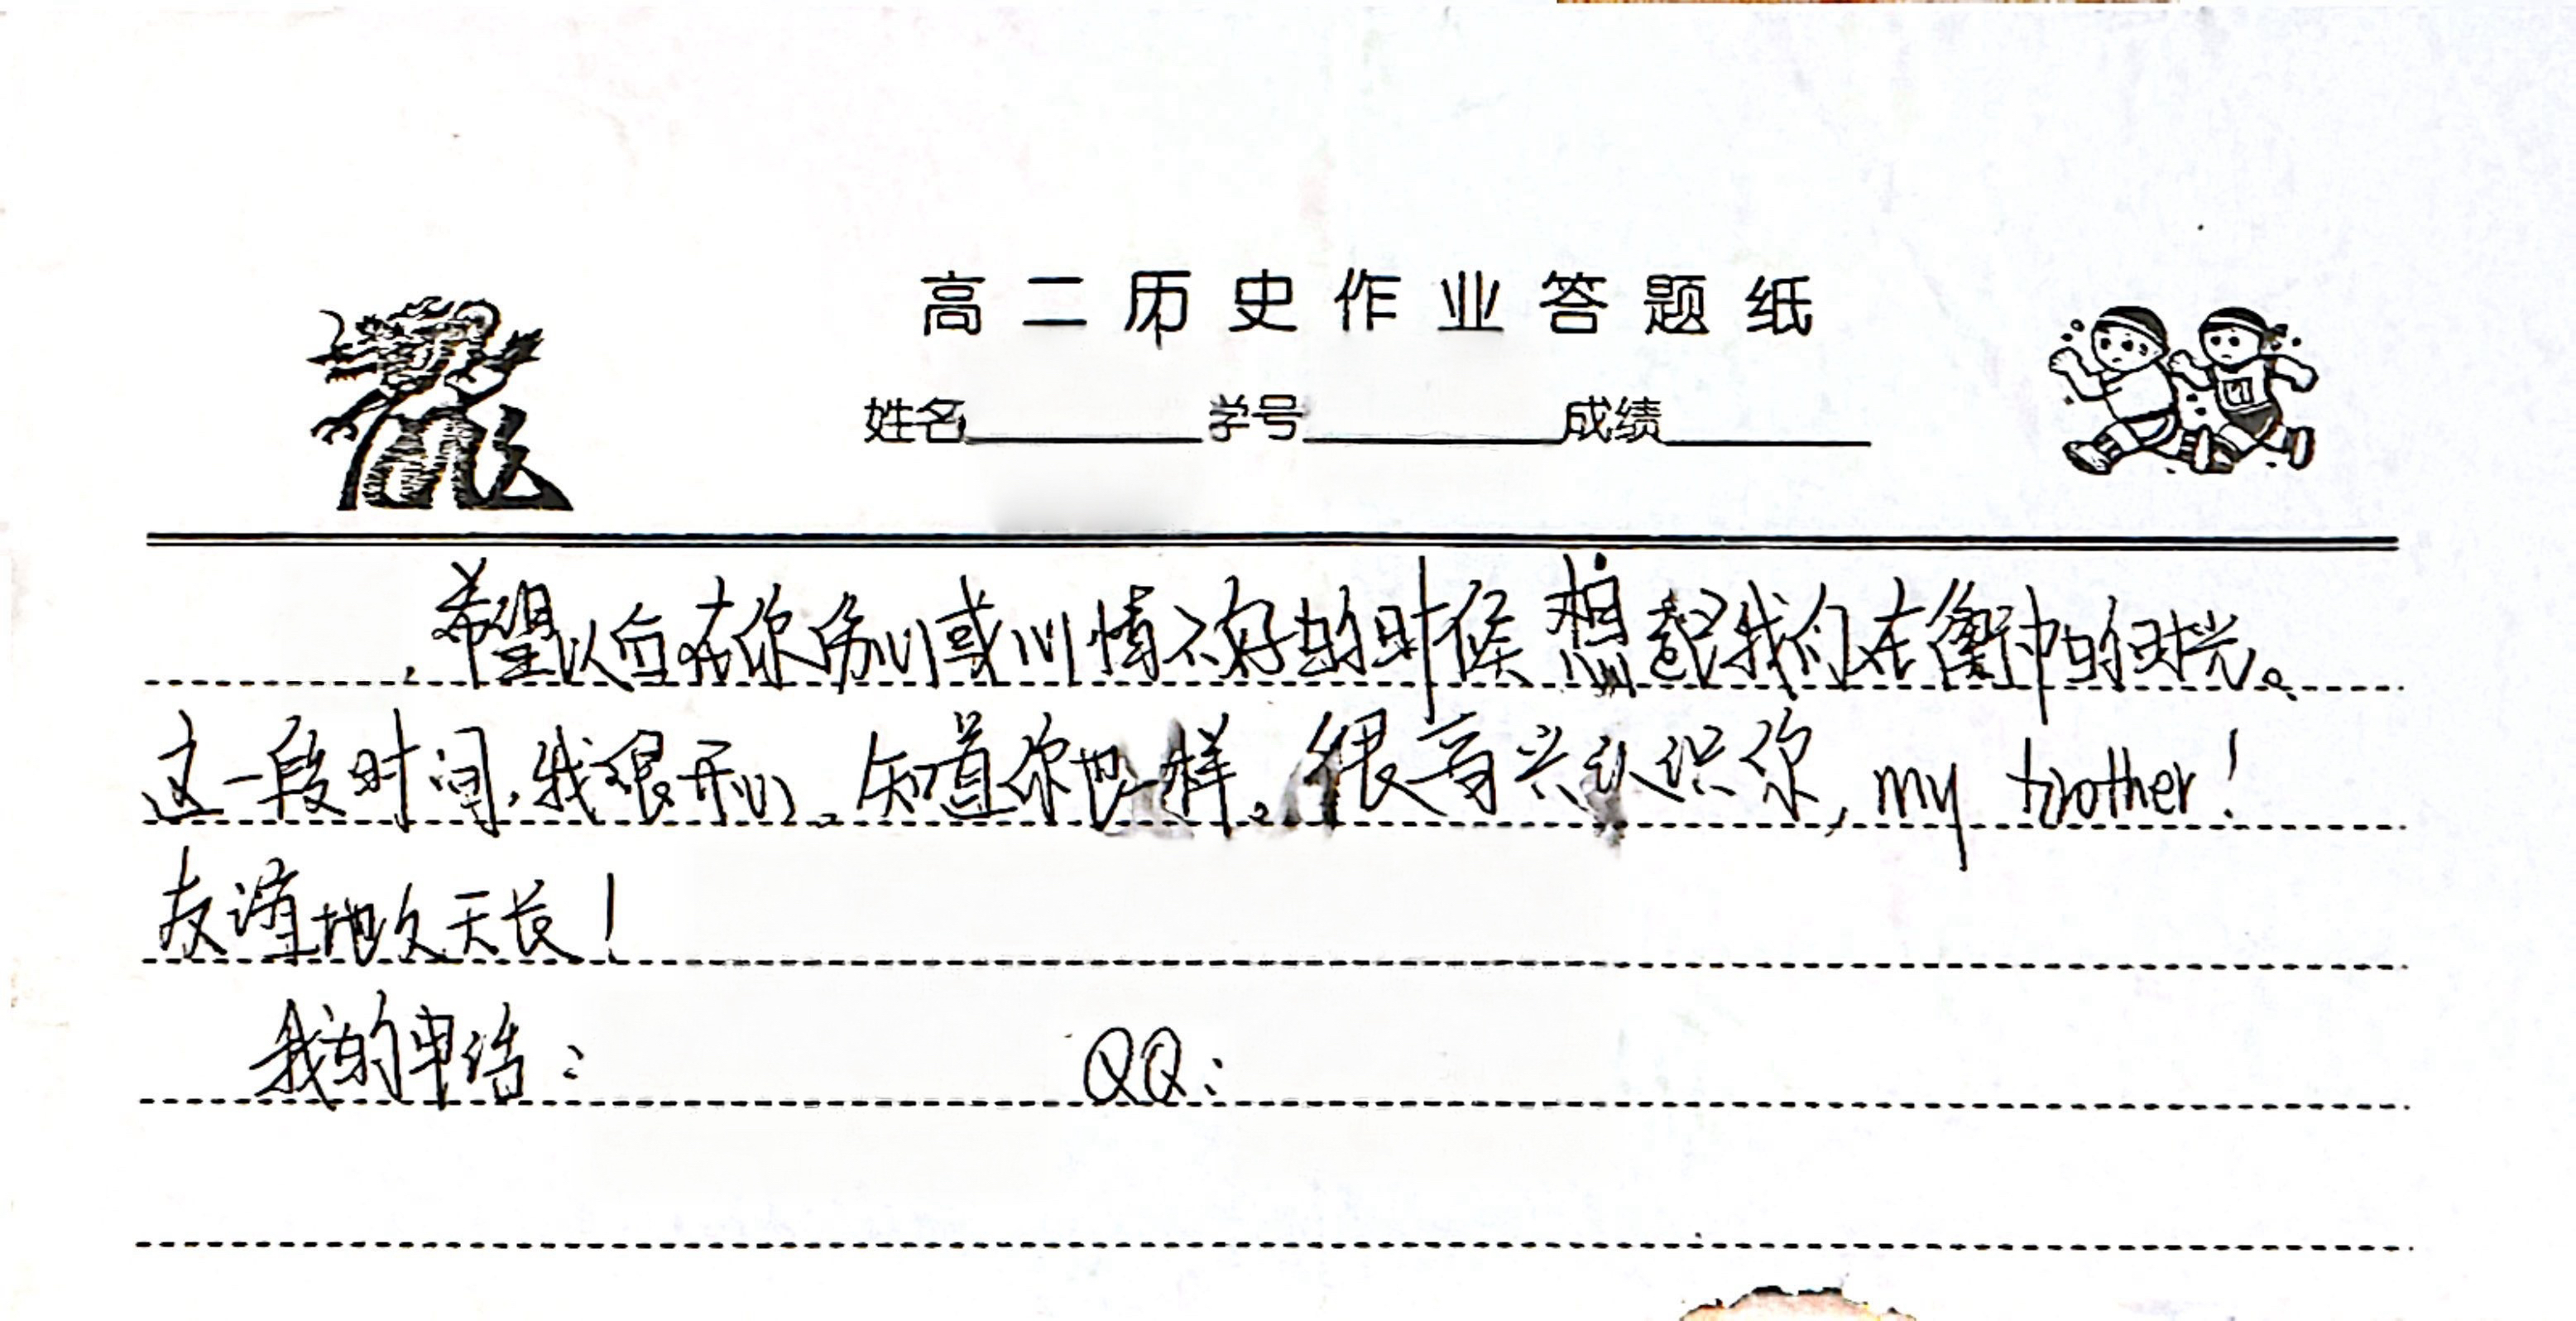 高二历史作业答题纸
姓名 学号 成绩
希望以后在你伤心或心情不好的时候想起我们在衡中的时光。
这一段时间,我很开心。知道你也一样。很高兴认识你, my brother!
友谊地久天长!
我的电话: QQ: